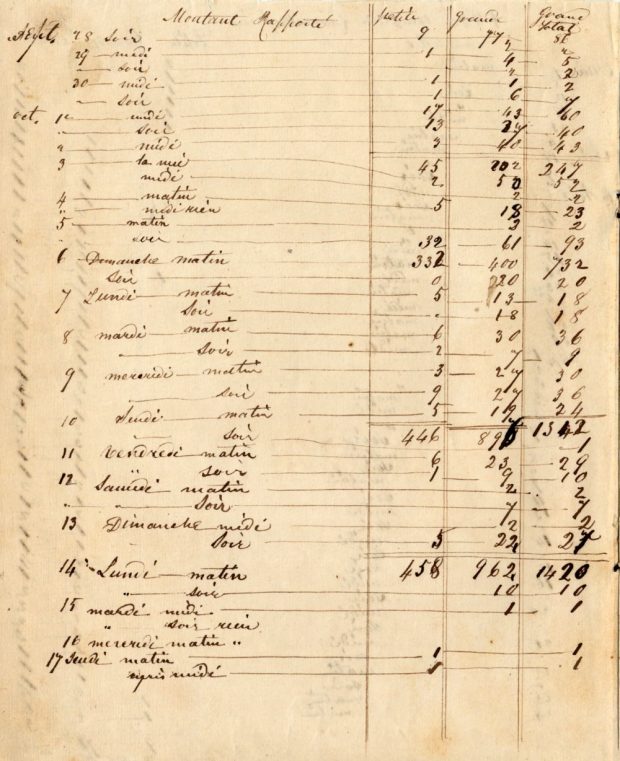 Montant Rapporté petite Grande Grand total
Sept. 28 soir 9 77 86
29 midi 1 4 5
— soir 2 2
30 midi 1 1 2
— soir 1 6 7
oct. 1er midi 17 43 60
" soir 13 27 40
" midi 3 40 43
3 45 202 247
midi 2 50 52
4 matin 2 2
" midi rien 5 18 23
5 matin 2 2
" soir 32 61 93
6 Dimanche matin 332 400 732
Soir 0 20 20
7 Lundi matin 5 13 18
Soir " 18 18
8 mardi matin 6 30 36
" soir 2 7 9
9 mercredi matin 3 27 30
" soir 9 27 36
10 Jeudi matin 5 19 24
" soir 446 896 1342
11 Vendredi matin 1
" soir 6 23 29
12 Samedi matin 1 9 10
" Soir 2 2
13 Dimanche midi 7 7
Soir 2 2
5 22 27
14 Lundi matin 458 962 1420
" soir 10 10
15 mardi midi 1 1
" soir rien
16 mercredi matin "
17 Jeudi matin 1 1
apris midi 1 1